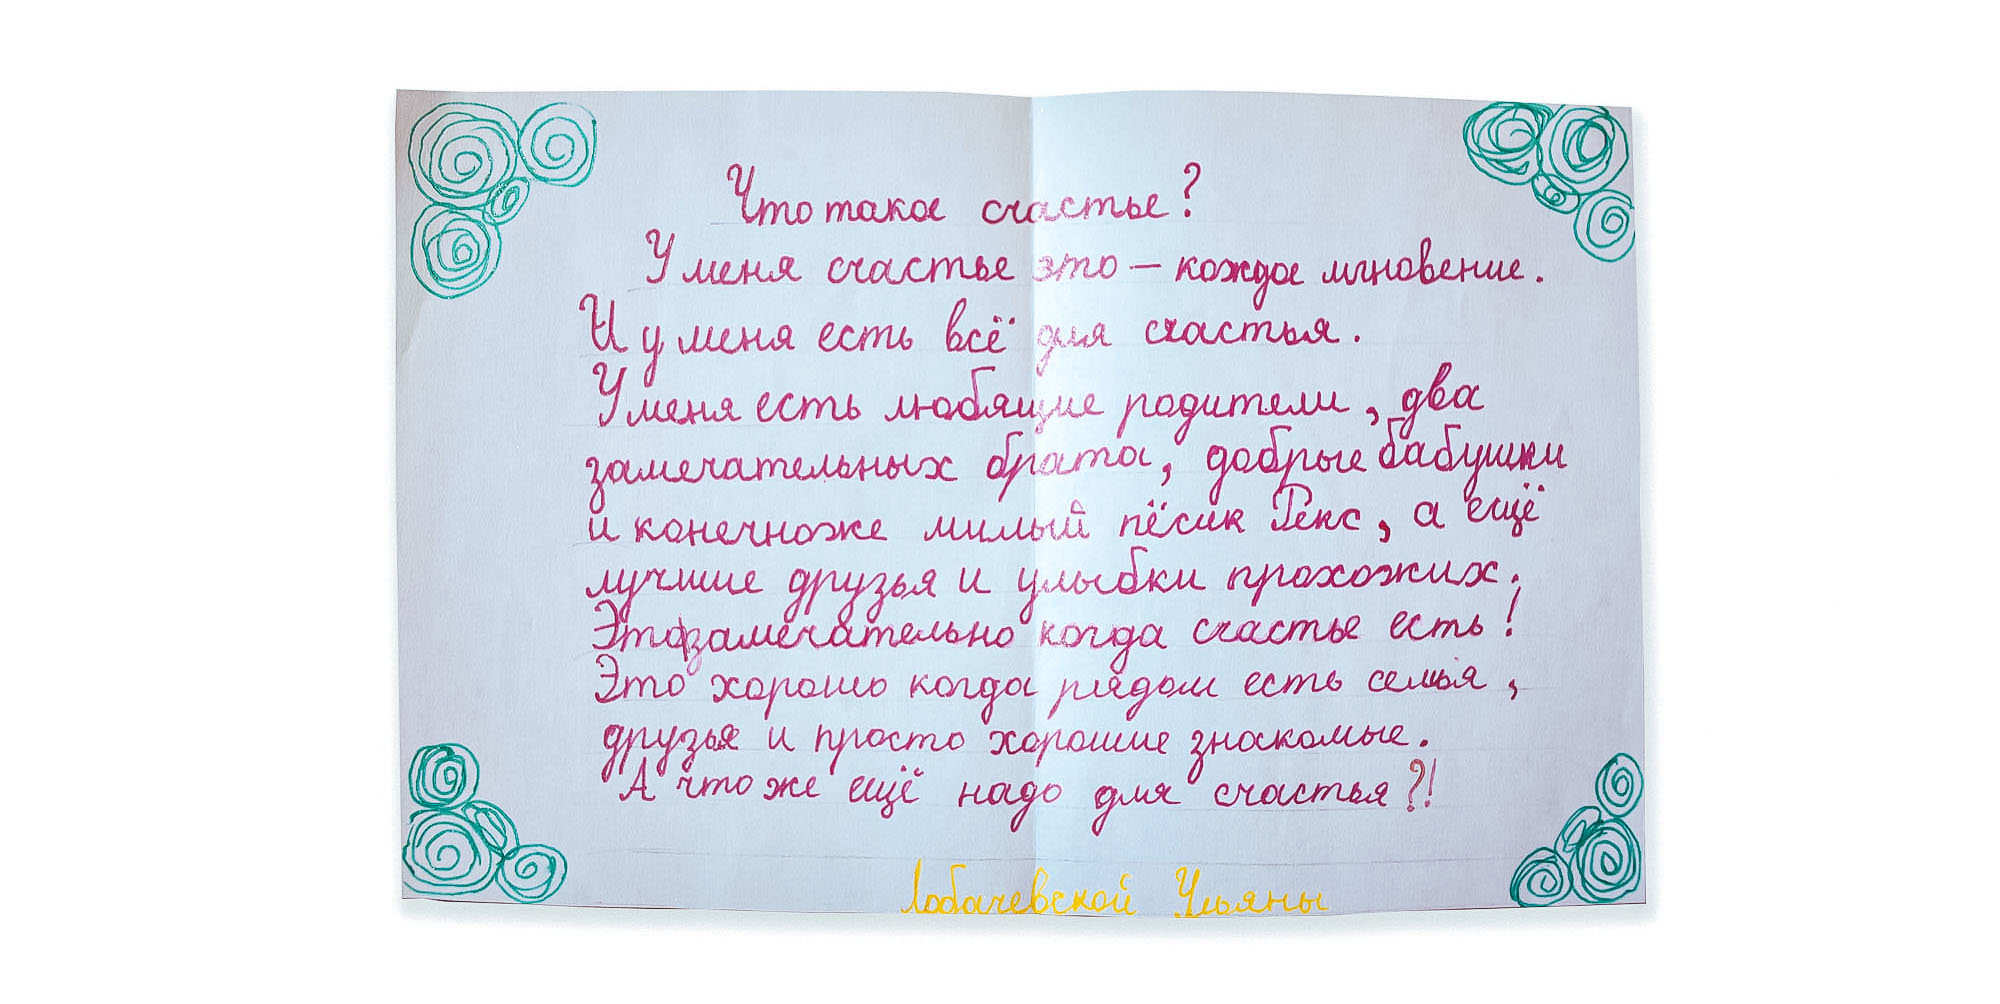 Что такое счастье?
У меня счастье это – каждое мгновение.
И у меня есть всё для счастья.
У меня есть любящие родители, два
замечательных брата, добрые бабушки
и конечноже милый пёсик Рекс, а ещё
лучшие друзья и улыбки прохожих.
Это замечательно когда счастье есть!
Это хорошо когда рядом есть семья,
друзья и просто хорошие знакомые.
А что же ещё надо для счастья?!
Лобачевской Ульяны